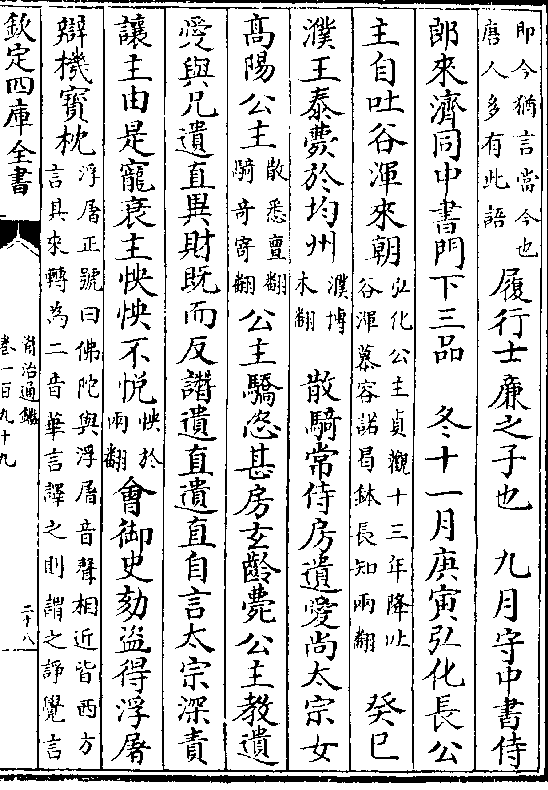 即今猶言當今也
唐人多有此語
履行士廉之子也　九月守中書侍
郎來濟同中書門下三品　冬十一月庚寅弘化長公
主自吐谷渾來朝
弘化公主貞觀十三年降吐
谷渾慕容諾曷鉢長知兩翻
癸巳
濮王泰薨於均州
濮博
木翻
散騎常侍房遺愛尚太宗女
高陽公主
散悉亶翻
騎奇寄翻
公主驕恣甚房玄齡薨公主教遺
愛與兄遺直異財既而反譖遺直遺直自言太宗深責
讓主由是寵衰主怏怏不悦
怏於
兩翻
會御史劾盜得浮屠
辯機寳枕
浮屠正號曰佛陀與浮屠音聲相近皆西方
言其來轉為二音華言譯之則謂之淨覺言
欽定四庫全書
資治通鑑
卷一百九十九
二十八